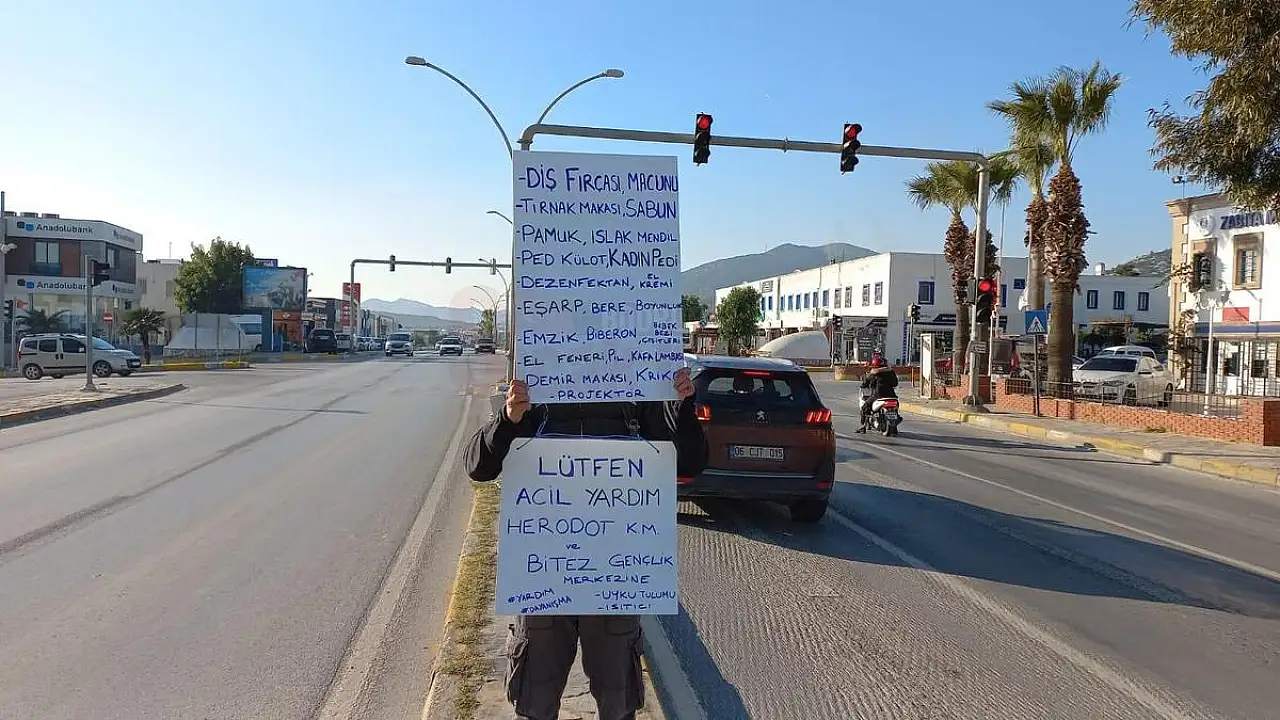 -DİŞ FIRÇASI, MACUNU
-TIRNAK MAKASI, SABUN
-PAMUK, ISLAK MENDİL
-PED KÜLOT, KADIN PEDİ
-DEZENFEKTAN, EL KREMİ
-EŞARP, BERE, BOYUNLUK
-EMZİK, BİBERON, BEBEK BEZİ
-EL FENERİ, PİL, KAFA LAMBASI
DEMİR MAKASI, KRİKO
-PROJEKTÖR
LÜTFEN
ACİL YARDIM
HERODOT K.M.
ve
BİTEZ GENÇLİK
MERKEZİNE
#YARDIM -UYKU TULUMU
#DAYANIŞMA -ISITICI
Anadolubank
Anadolubank
ZABITA
06 CJT 015